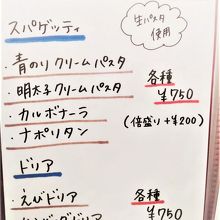 スパゲッティ
生パスタ
使用
・青のりクリームパスタ
・明太子クリームパスタ
各種
¥750
・カルボナーラ
(倍盛り+¥200)
・ナポリタン
ドリア
・えびドリア
各種
¥750